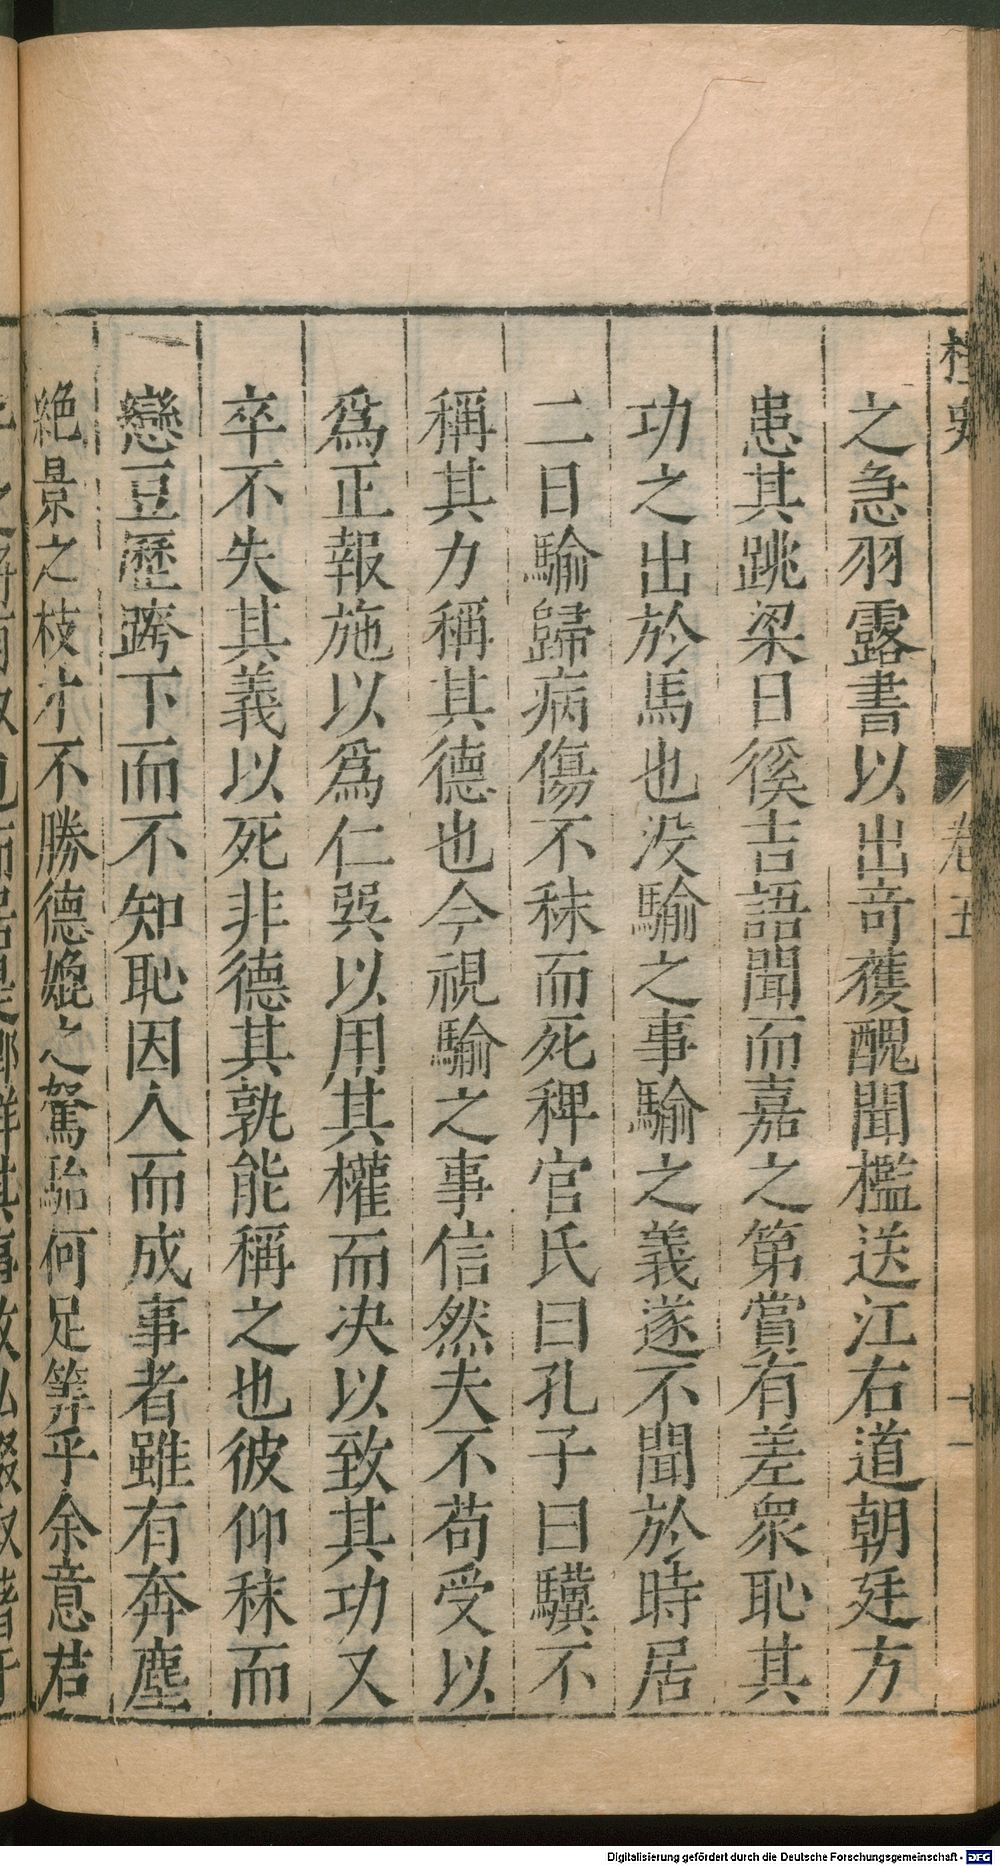 卷五
十一
之急羽露書以出竒獲醜聞檻送江右道朝廷方
患其跳梁日徯吉語聞而嘉之第賞有差衆恥其
功之出於馬也没騟之事騟之義遂不聞於時居
二日騟歸病傷不秣而死稗官氏曰孔子曰驥不
稱其力稱其德也今視騟之事信然夫不苟受以
爲正報施以爲仁巽以用其權而决以致其功又
卒不失其義以死非德其孰能稱之也彼仰秣而
戀豆歷跨下而不知恥因人而成事者雖有奔塵
絶景之枝才不勝德媲之駑駘何足筭乎余意君
Digitalisierung gefördert durch die Deutsche Forschungsgemeinschaft - DFG